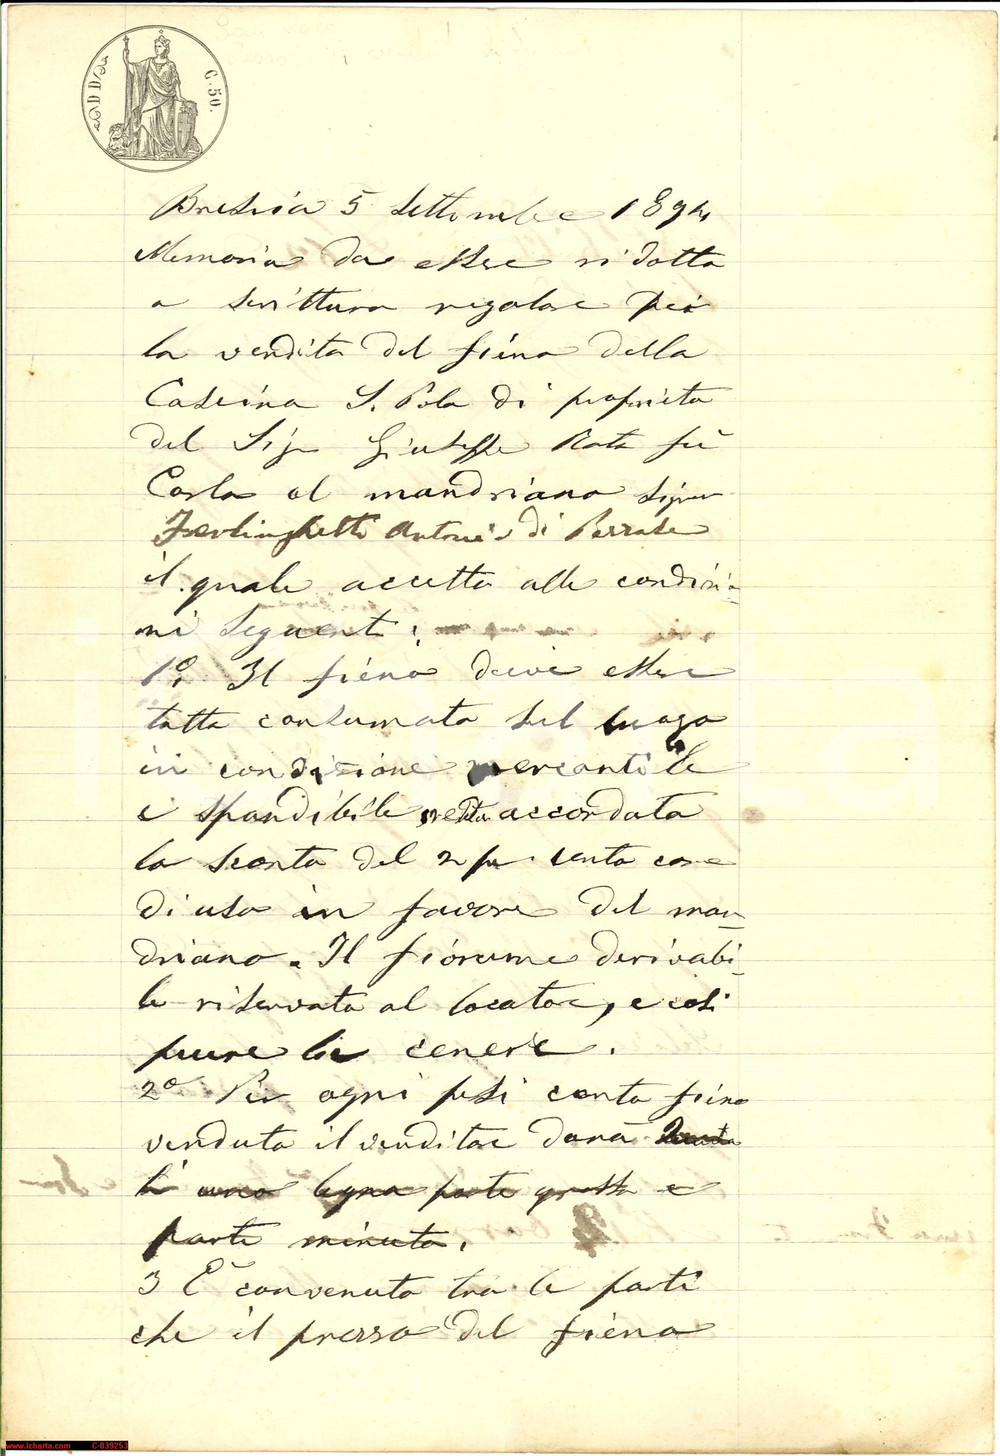 C. 50.
Brescia 5 Settembre 1894
Memoria da essere ridotta
a scrittura regolare per
la vendita del fieno della
Cascina S. Polo di proprietà
del Sig.r Giuseppe Rota fù
Carlo al mandriano signor
Antonio di
il quale accetta alle condizio-
ni seguenti:
1º. Il fieno deve essere
tutto consumato sul luogo
in condizione mercantile
e spandibile, resta accordato
lo sconto del 2 per cento come
di uso in favore del man-
driano. Il fiorume derivabi-
le riservato al locatore, e così
pure le cenere.
2º Per ogni pesi cento fieno
venduto il venditore darà
legna parte grossa e
parte minuta.
3 È convenuto tra le parti
che il prezzo del fieno
www.icharta.com C-839253